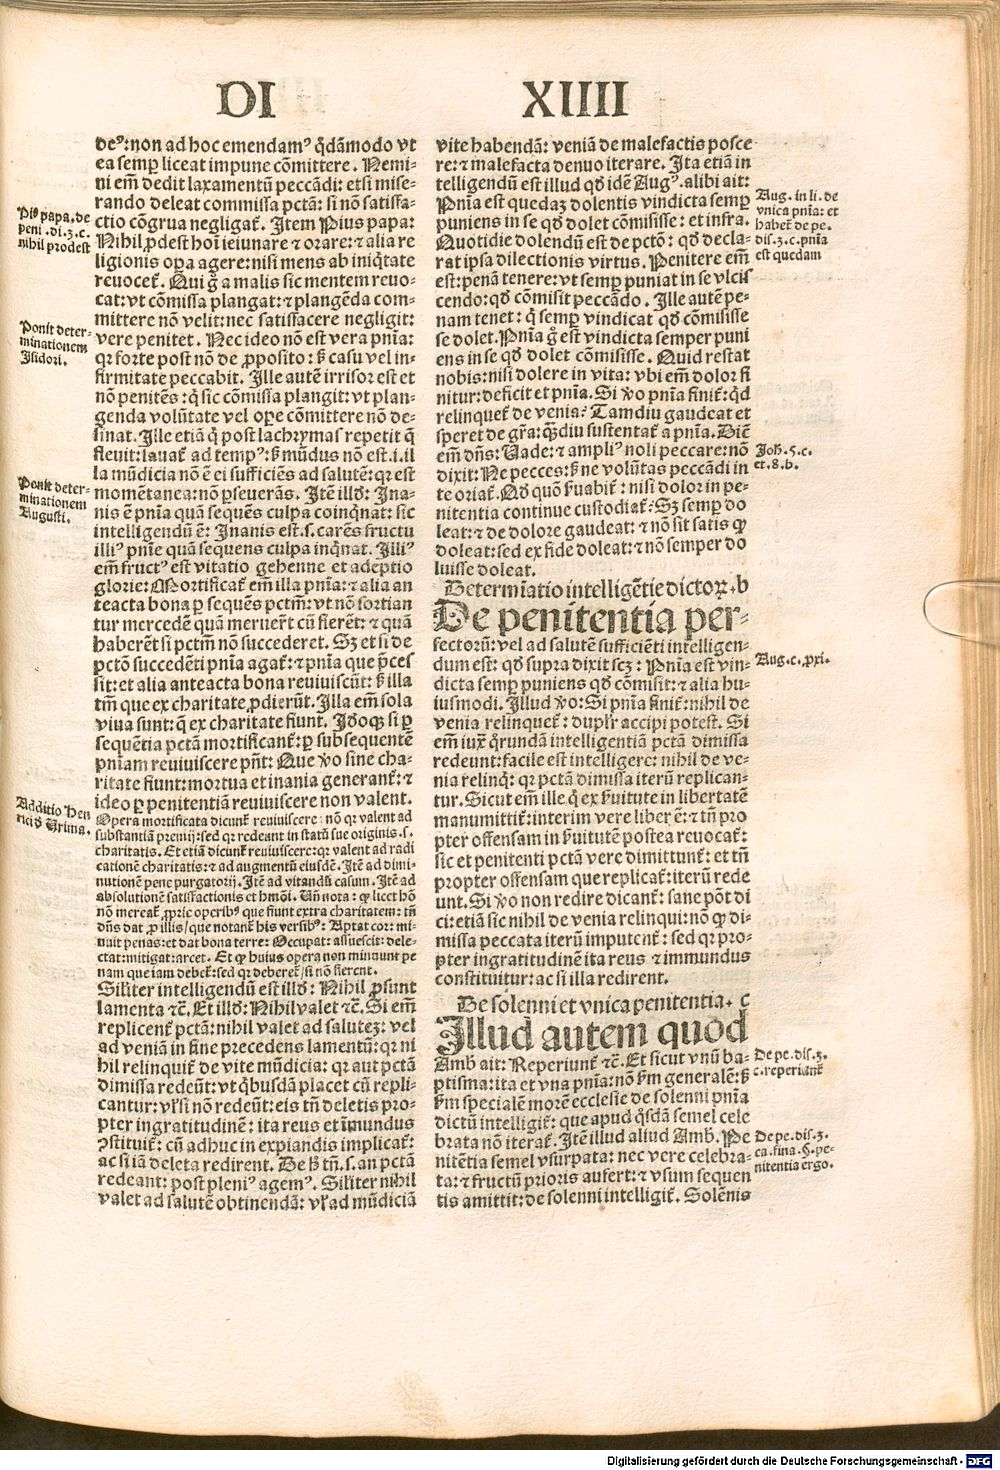 DI XIIII
deꝰ: non ad hoc emendamꝰ q̃dãmodo vt
ea semꝑ liceat impune cõmittere. Nemi-
ni em̃ dedit laxamentũ peccãdi: etsi mise-
rando deleat commissa pctã: si nõ satisfa-
ctio cõgrua negligat̃. Item Pius papa:
Nihil ꝓdest hoĩ ieiunare ⁊ orare: ⁊ alia re
ligionis oꝑa agere: nisi mens ab iniq̃tate
reuocet̃. Qui g̃ a malis sic mentem reuo-
cat: vt cõmissa plangat: ⁊ plangẽda com-
mittere nõ velit: nec satisfacere negligit:
vere penitet. Nec ideo nõ est vera pñia:
qꝛ forte post nõ de ꝓposito: s̃ casu vel in-
firmitate peccabit. Ille autẽ irrisor est et
nõ penitẽs: q̃ sic cõmissa plangit: vt plan-
genda volũtate vel oꝑe cõmittere nõ de-
sinat. Ille etiã q̃ post lachrymas repetit q̃
fleuit: lauat̃ ad tempꝰ: s̃ mũdus nõ est .i. il
la mũdicia nõ ẽ ei sufficiẽs ad salutẽ: qꝛ est
momẽtanea: nõ ꝑseuerãs. Itẽ illd̃: Ina-
nis ẽ pñia quã sequẽs culpa coinq̃nat: sic
intelligendũ ẽ: Inanis est .s. carẽs fructu
illiꝰ pñie quã sequens culpa inq̃nat. Illiꝰ
em̃ fructꝰ est vitatio gehenne et adeptio
glorie: Mortificat̃ em̃ illa pñia: ⁊ alia an
teacta bona ꝑ sequẽs pctm̃: vt nõ sortian
tur mercedẽ quã meruer̃t cũ fierẽt: ⁊ quã
haberẽt si pctm̃ nõ succederet. Sꝫ et si de
pctõ succedẽti pñia agat̃: ⁊ pñia que p̃ces
sit: et alia anteacta bona reuiuiscũt: s̃ illa
tm̃ que ex charitate ꝓdierũt. Illa em̃ sola
viua sunt: q̃ ex charitate fiunt. Idoqꝫ si ꝑ
sequẽtia pctã mortificant̃: ꝑ subsequentẽ
pñiam reuiuiscere pñt: Que ṽo sine cha-
ritate fiunt: mortua et inania generant̃: ⁊
ideo ꝑ penitentiã reuiuiscere non valent.
Opera mortificata dicunt̃ reuiuiscere: nõ qꝛ valent ad
substantiam premij: sed qꝛ redeant in statũ sue originis .s.
charitatis. Et etiã dicunt̃ reuiuiscere: qꝛ valent ad radi
cationẽ charitatis: ⁊ ad augmentũ eiusdẽ. Itẽ ad dimi
nutionẽ pene purgatorij. Itẽ ad vitandũ casum. Itẽ ad
absolutionẽ satisfactionis et hmõi. Vñ nota: ꝙ licet hõ
nõ mereat̃ ꝓprie operibꝰ que fiunt extra charitatem: tñ
dñs dat ꝓ illis/que notant̃ his versibꝰ: Aptat cor: mi-
nuit penas: et dat bona terre: Occupat: assuescit: dele-
ctat: mitigat: arcet. Et ꝙ huius opera non minuunt pe
nam que iam debet̃: sed qꝛ deberet̃/si nõ fierent.
Siliter intelligendũ est illd̃: Nihil ꝓsunt
lamenta ⁊c̃. Et illd̃: Nihil valet ⁊c̃. Si em̃
replicent̃ pctã: nihil valet ad salutez: vel
ad veniã in fine precedens lamentũ: qꝛ ni
hil relinquit̃ de vite mũdicia: qꝛ aut pctã
dimissa redeũt: vt q̃busdã placet cũ repli-
cantur: vl̃ si nõ redeũt: eis tñ deletis pro-
pter ingratitudinẽ: ita reus et ĩmundus
ꝯstituit̃: cũ adhuc in expiandis implicat̃:
ac si iã deleta redirent. De h̃ tñ .s. an pctã
redeant: post pleniꝰ agemꝰ. Siliter nihil
valet ad salutẽ obtinendã: vl̃ ad mũdiciã
Piꝰ papa. de
peni. di. 3. c.
nihil prodest
Ponit deter-
minationem
Isidori.
Ponit deter-
minationem
Augusti.
Additio Hen
rici ð Vrima.
vite habendã: veniã de malefactis posce
re: ⁊ malefacta denuo iterare. Ita etiã in
telligendũ est illud qd̃ idẽ Augꝰ. alibi ait:
Pñia est quedaz dolentis vindicta semꝑ
puniens in se qd̃ dolet cõmisisse: et infra.
Quotidie dolendũ est de pctõ: qd̃ decla-
rat ipsa dilectionis virtus. Penitere em̃
est: penã tenere: vt semꝑ puniat in se vlcis
cendo: qd̃ cõmisit peccãdo. Ille autẽ pe-
nam tenet: q̃ semꝑ vindicat qd̃ cõmisisse
se dolet. Pñia g̃ est vindicta semper puni
ens in se qd̃ dolet cõmisisse. Quid restat
nobis: nisi dolere in vita: vbi em̃ dolor fi
nitur: deficit et pñia. Si ṽo pñia finit̃: q̃d
relinquet̃ de venia? Tamdiu gaudeat et
speret de gr̃a: q̃ꝫdiu sustentat̃ a pñia. Dicẽ
em̃ dñs: Uade: ⁊ ampliꝰ noli peccare: nõ
dixit: Ne pecces: s̃ ne volũtas peccãdi in
te oriat̃. Qd̃ quõ s̃uabit̃: nisi dolor in pe-
nitentia continue custodiat̃? Sꝫ semꝑ do
leat: ⁊ de dolore gaudeat: ⁊ nõ sit satis ꝙ
doleat: sed ex fide doleat: ⁊ nõ semper do
luisse doleat.
Determĩatio intelligẽtie dictoꝝ. b
De penitentia per-
fectorũ: vel ad salutẽ sufficiẽti intelligen-
dum est: qd̃ supra dixit scꝫ: Pñia est vin-
dicta semꝑ puniens qd̃ cõmisit: ⁊ alia hu-
iusmodi. Illud ṽo: Si pñia finit̃: nihil de
venia relinquet̃: dupl̃r accipi potest. Si
em̃ iux̃ q̃rundã intelligentiã pctã dimissa
redeunt: facile est intelligere: nihil de ve-
nia relinq̃: qꝛ pctã dimissa iterũ replican-
tur. Sicut em̃ ille q̃ ex s̃uitute in libertatẽ
manumittit̃: interim vere liber ẽ: ⁊ tñ pro
pter offensam in s̃uitutẽ postea reuocat̃:
sic et penitenti pctã vere dimittunt̃: et tñ
propter offensam que replicat̃: iterũ rede
unt. Si ṽo non redire dicant̃: sane põt di
ci: etiã sic nihil de venia relinqui: nõ ꝙ di-
missa peccata iterũ imputent̃: sed qꝛ pro-
pter ingratitudinẽ ita reus ⁊ immundus
constituitur: ac si illa redirent.
De solenni et vnica penitentia. c
Illud autem quod
Amb̃ ait: Reperiunt̃ ⁊c̃. Et sicut vnũ ba-
ptisma: ita et vna pñia: nõ s̃m generalẽ: s̃
s̃m specialẽ morẽ ecclesie de solenni pñia
dictũ intelligit̃: que apud q̃sdã semel cele
brata nõ iterat̃. Itẽ illud aliud Amb̃. Pe
nitẽtia semel vsurpata: nec vere celebra-
ta: ⁊ fructũ prioris aufert: ⁊ vsum sequen
tis amittit: de solenni intelligit̃. Solẽnis
Aug. in li. de
vnica pñia: et
habet̃ de pe.
dis. 3. c. pñia
est quedam
Joh̃. 5. c.
et. 8. b.
Aug. c. ꝓxi.
De pe. dis. 3.
c. reperiunt̃
De pe. dis. 3.
ca. fina. §. pe-
nitentia ergo.
Digitalisierung gefördert durch die Deutsche Forschungsgemeinschaft - DFG